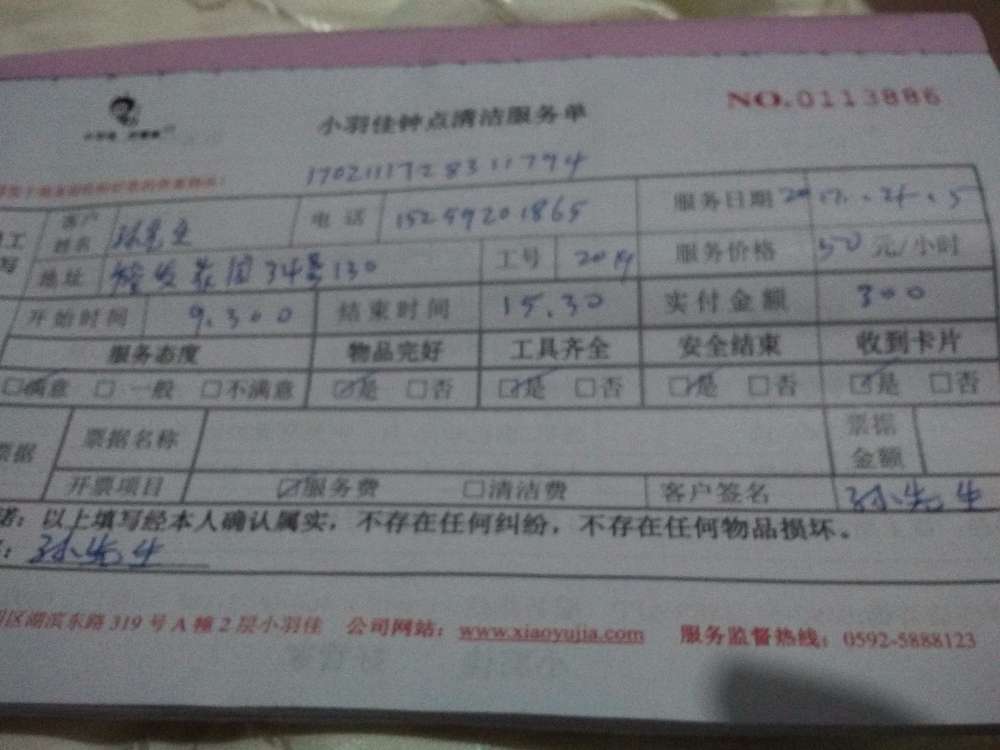 NO.0113886
小羽佳钟点清洁服务单
1702111728311794
客户姓名 孙先生 电话 15259201865 服务日期 2017.
地址 花园34 130 工号 2019 服务价格 50元/小时
开始时间 9.300 结束时间 15.30 实付金额 300
服务态度 物品完好 工具齐全 安全结束 收到卡片
☑满意 □一般 □不满意 ☑是 □否 ☑是 □否 ☑是 □否 ☑是 □否
票据 票据名称 票据金额
开票项目 ☑服务费 □清洁费 客户签名 孙先生
诺：以上填写经本人确认属实，不存在任何纠纷，不存在任何物品损坏。
：孙先生
区湖滨东路319号A幢2层小羽佳 公司网站：www.xiaoyujia.com 服务监督热线：0592-5888123